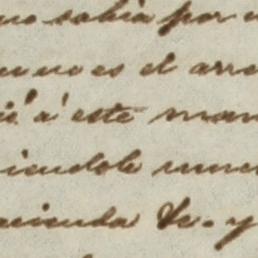 no sabia por
no es el arre
á este man
iendole
acienda &. y